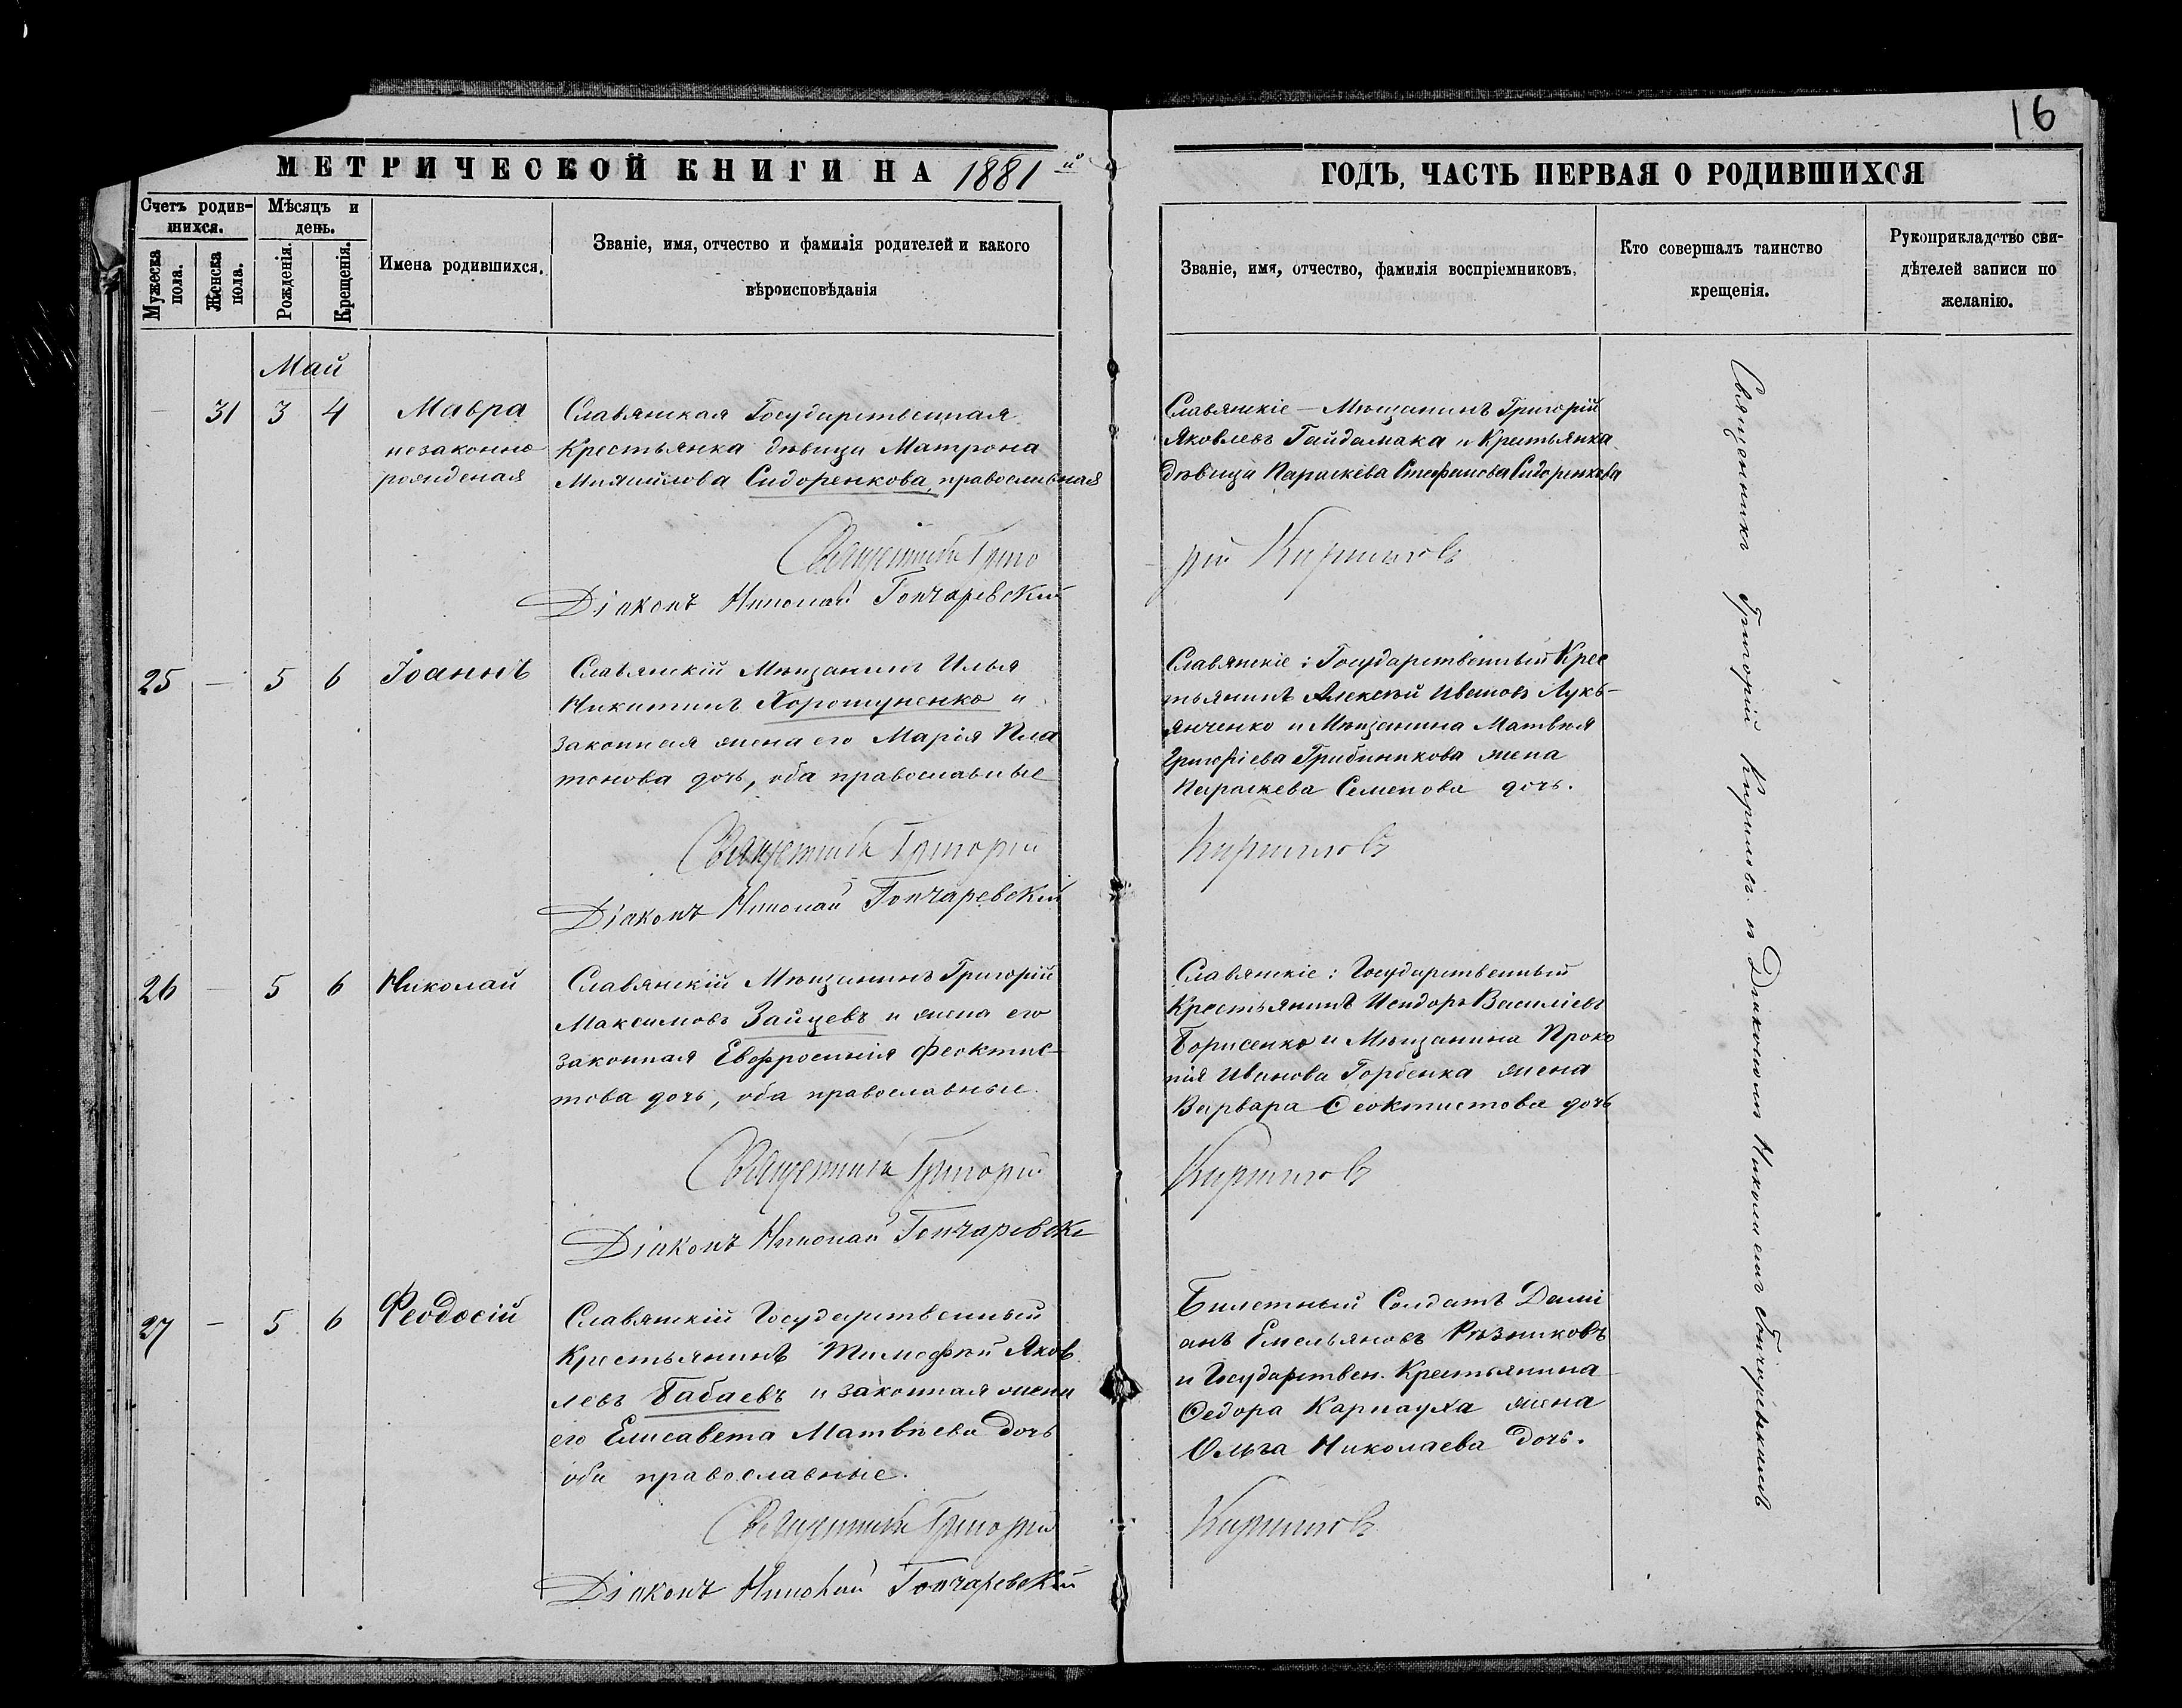 16
МЕТРИЧЕСКОЙ КНИГИ НА 1881й
ГОДЪ, ЧАСТЬ ПЕРВАЯ О РОДИВШИХСЯ
Счетъ родив-
шихся.
Мѣсяцъ и
день.
Мужеска
пола.
Женска
пола.
Рожденія.
Крещенія.
Имена родившихся.
Званіе, имя, отчество и фамилія родителей и какого
вѣроисповѣданія
Званіе, имя, отчество, фамилія воспріемниковъ.
Кто совершалъ таинство
крещенія.
Рукоприкладство сви-
дѣтелей записи по
желанію.
Май
— 31 3 4
Мавра
незаконно
рожденая
Славянская Государственная
Крестьянка дѣвица Матрона
Сидоренкова, православная
Славянскіе — Мѣщанинъ Григорій
Яковлевъ Гайдамака и Крестьянка
дѣвица Параскева Стефанова Сидоренкова
Священникъ Григо
рій Кириловъ
Діаконъ Николай Гончаревскій
25 — 5 6
Іоаннъ
Славянскій Мѣщанинъ Илья
Никитинъ Хорошуненко и
законная жена его Марія Пла
тонова дочь, оба православные
Славянскіе: Государственный Крес
тьянинъ Алексѣй Ивановъ Лукь-
янченко и Мѣщанина Матвѣя
Григоріева Грибиникова жена
Параскева Семенова дочь.
Священникъ Григорій
Кириловъ
Діаконъ Николай Гончаревскій
26 — 5 6
Николай
Славянскій Мѣщанинъ Григорій
Максимовъ Зайцевъ и жена его
законная Евфросинія Феоктис-
това дочь, оба православные.
Славянскіе: Государственный
Крестьянинъ Исидоръ Василіевъ
Борисенко и Мѣщанина Проко
пія Иванова Горбенка жена
Варвара Ѳеоктистова дочь
Священникъ Григорій
Кириловъ
Діаконъ Николай Гончаревскі
27 — 5 6
Феодосій
Славянскій Государственный
Крестьянинъ Тимофѣй Яков
левъ Бабаевъ и законная жена
его Елисавета Матвѣева дочь
оба православные.
Билетный Солдатъ Демі
анъ Емельяновъ Рѣзниковъ
и Государствен. Крестьянина
Ѳедора Карнауха жена
Ольга Николаева дочь.
Священникъ Григорій
Кириловъ
Діаконъ Николай Гончаревскій
Священникъ Григорій Кириловъ съ Діакономъ Николаемъ Гончаревскимъ